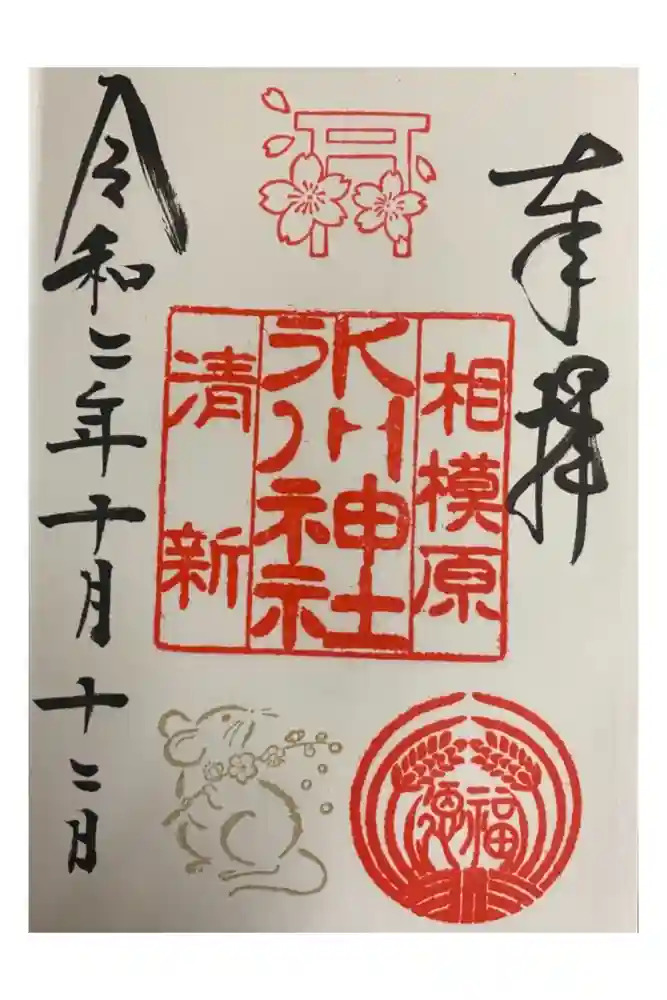 奉拝
相模原
氷川神社
清新
福恩
令和二年十月十二日